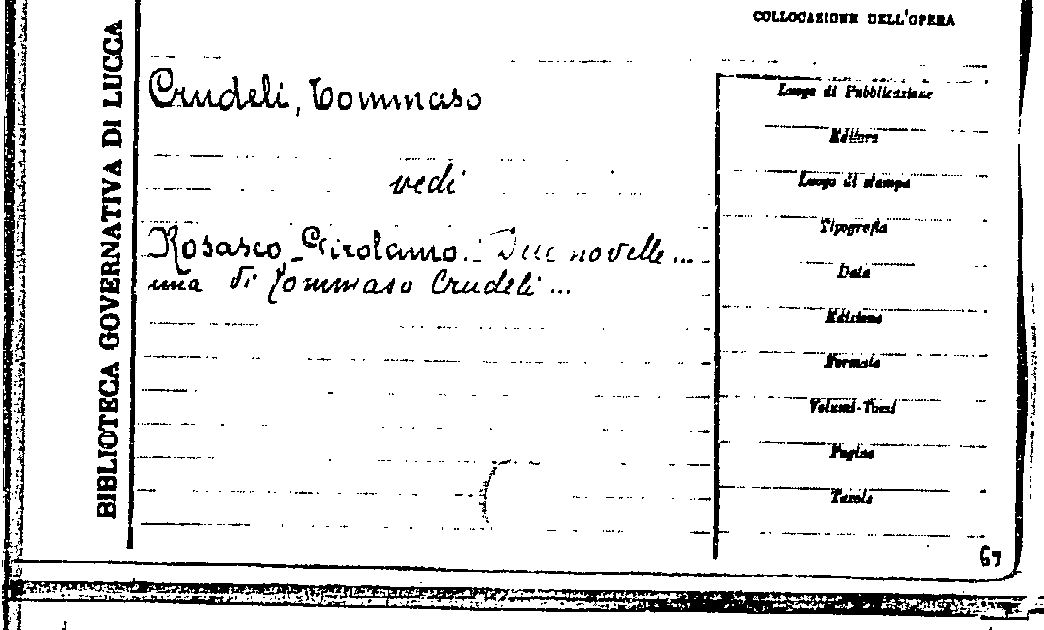 COLLOCAZIONE DELL'OPERA
BIBLIOTECA GOVERNATIVA DI LUCCA
Crudeli, Tommaso
vedi
Rosasco, Girolamo. Due novelle...
una di Tommaso Crudeli...
Luogo di Pubblicazione
Editore
Luogo di stampa
Tipografia
Data
Edizione
Formato
Volumi-Tomi
Pagine
Tavole